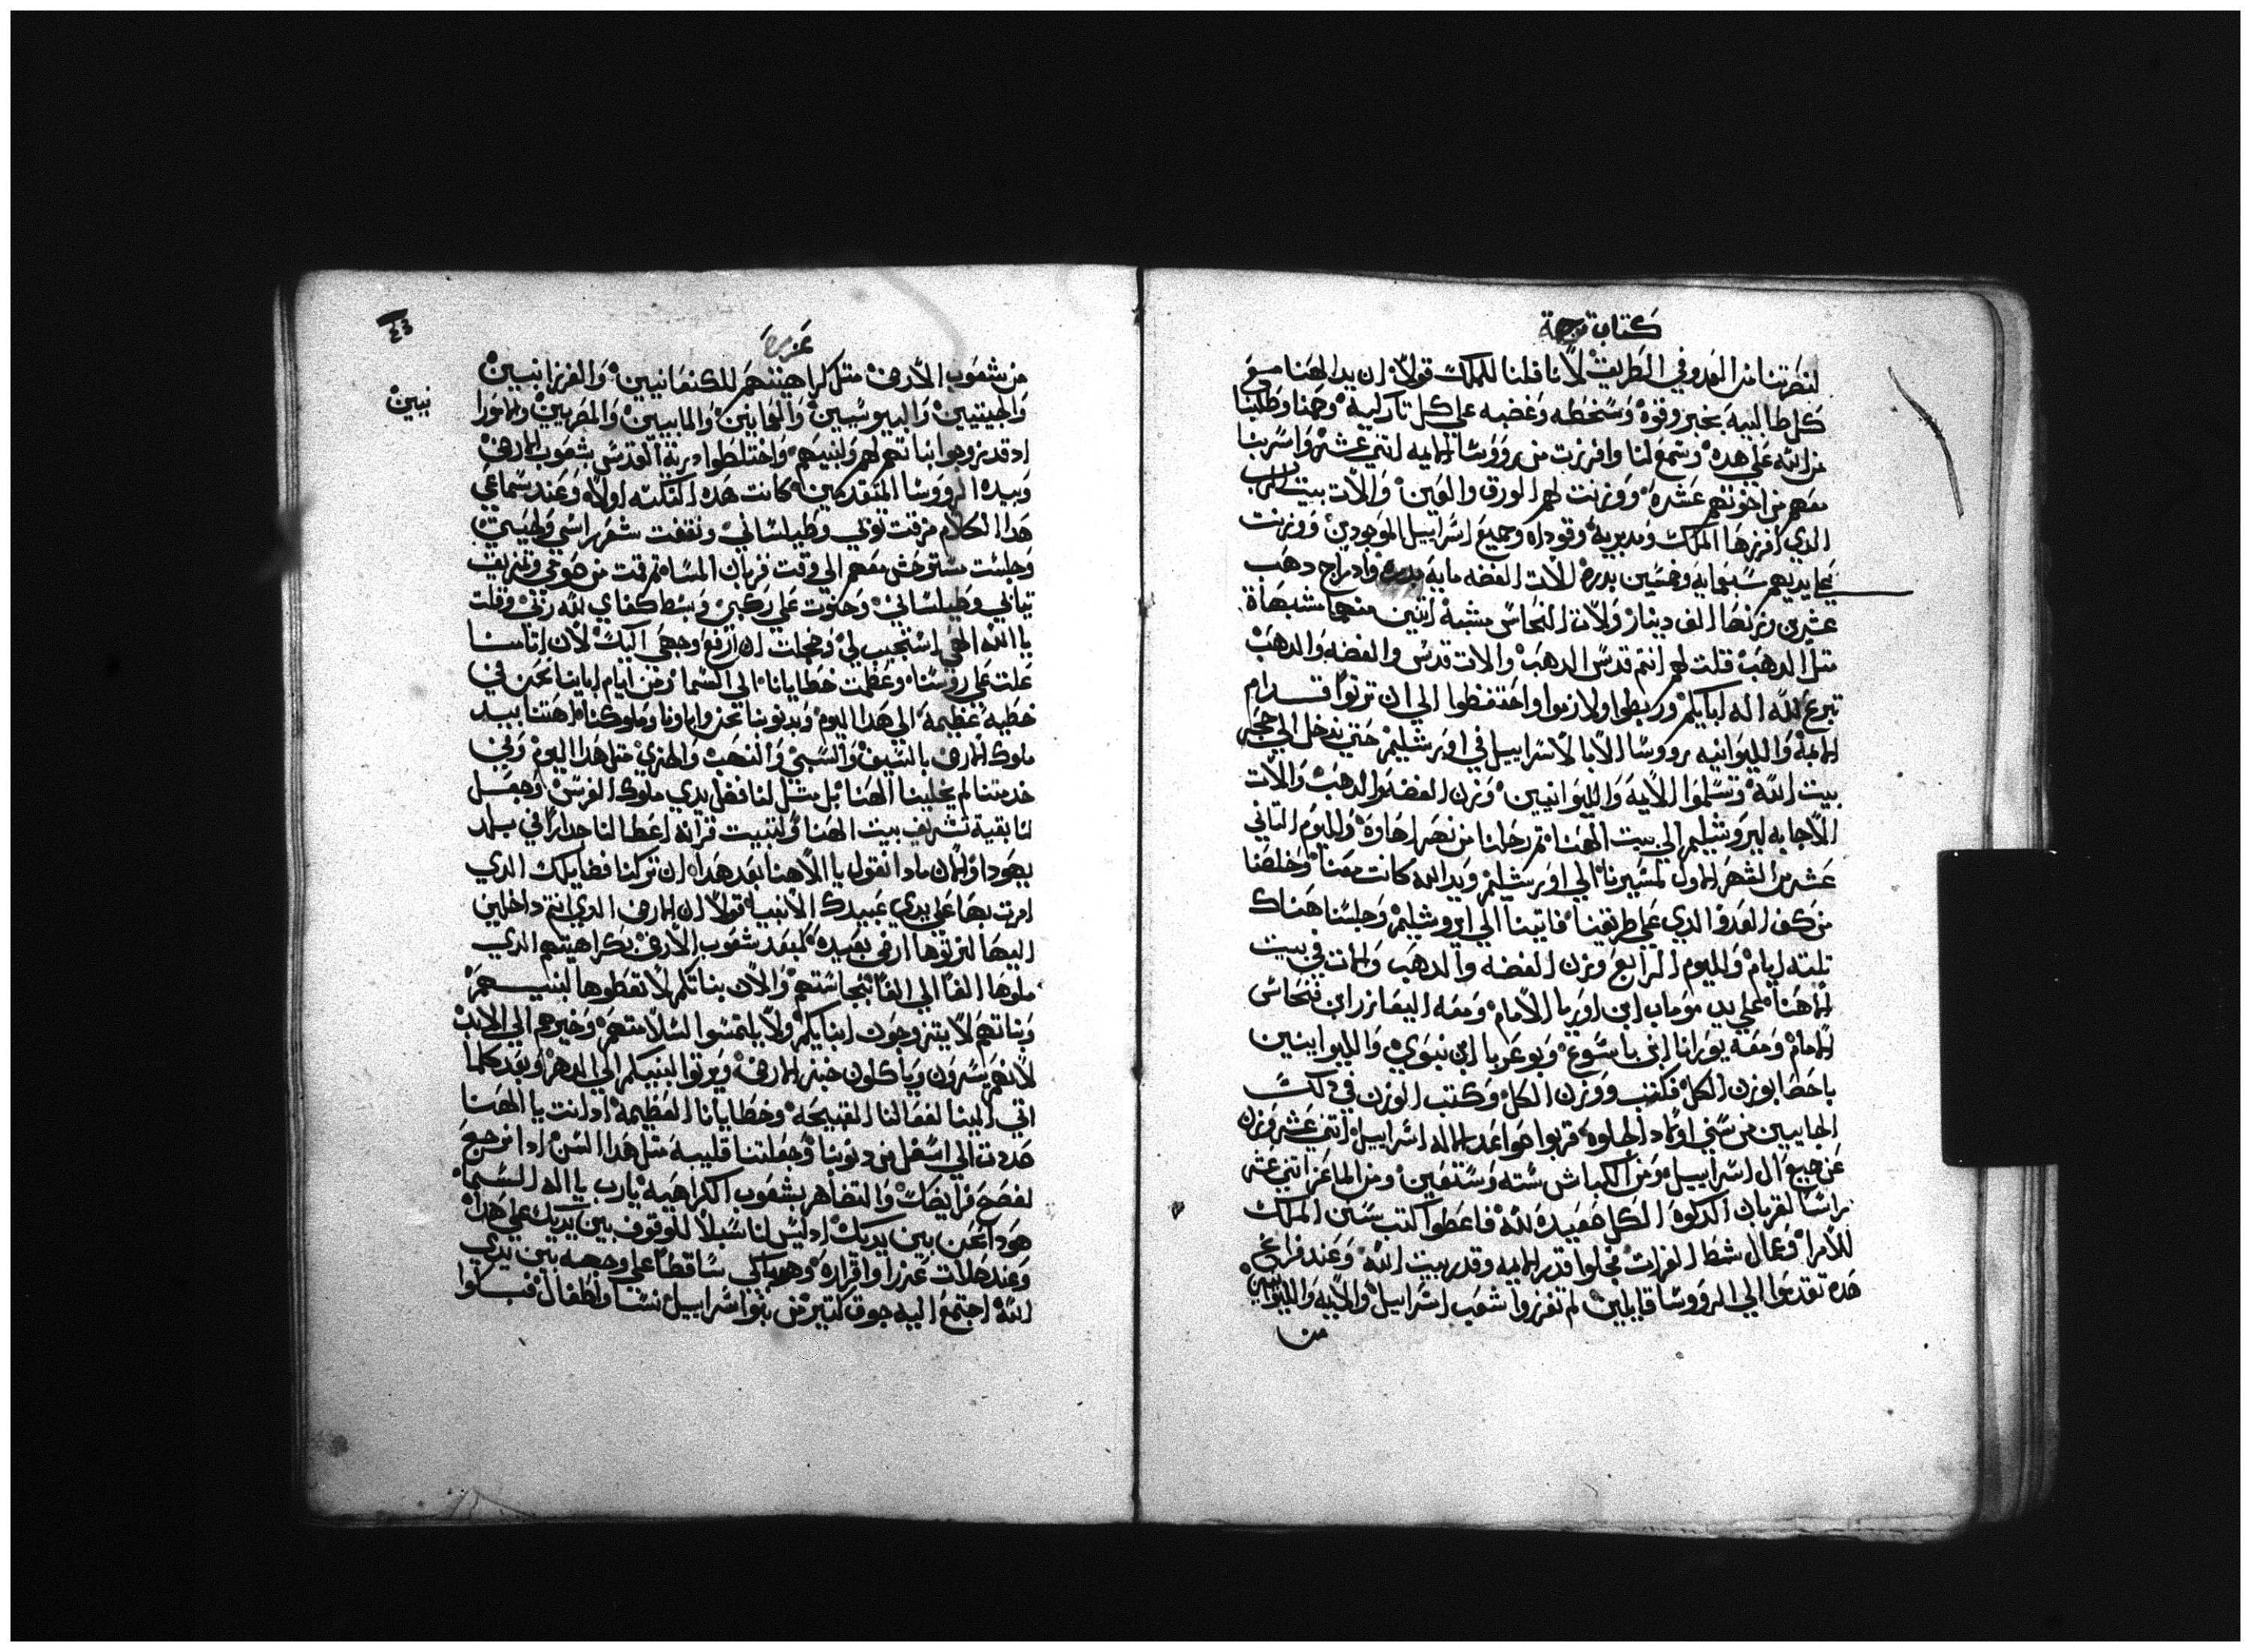 كتاب ترجمة
لنضرتنا من العدو في الطريق لاننا قلنا للملك قولاً ان يد الهنا مع
كل طالبيه بخير وقوة وسخطه وغضبه علي كل تاركيه وصمنا وطلبنا
من الله علي هده وسمع لنا وافرزت من رووسا الايمه اتني عشر واسربنا
معهم من اخوتهم عشره ووزنت لهم الورق والعين والات بيت الرب
الدي افرزها الملك ومدبريه وقواده وجميع اسراييل الموجودين ووزنت
علي ايديهم ستمايه وخمسين بدره للات الفضه مايه بدره وادراج دهب
عشرين وزنها الف دينار والات النحاس مشبه اتنين منهما مشبهاة
متل الدهب قلت لهم انتم قدس الدهب والات قدس والفضه والدهب
تبرع لله اله ابايكم وربطوا ولازموا واحتفظوا الي ان تزنوا قدام
الايمة والليوانيه رووسا الابا لاسراييل في اورشليم حتي ندخل الي حجر
بيت الله وتسلموا الايمه والليوانيين وزن الفضه والدهب والات
الاجابه ليروشليم الي بيت الهنا تم رحلنا من نهر احاوة واليوم التاني
عشر من الشهر الاول لمسيرنا الي اورشليم ويد الله كانت معنا وخلصنا
من كف العدو الدي علي طريقنا فاتينا الي ايروشليم وجلسنا هناك
تلته ايام واليوم الرابع وزن الفضه والدهب والات في بيت
الاهنا علي يد موماب ابن اوريا الامام ومعه اليعازر ابن فنحاس
الامام ومعه يوزانا ابن ياسوع ويوعريا ابن نبوي والليوانيين
باحضا بوزن الكل فكتب ووزن الكل وكتب الوزن في دلك
الجاييين من سبي اولاد الجلوه قربوا صواعد لاله اسراييل اتني عشر وزن
عن جميع ال اسراييل ومن الكباش سته وستعين ومن الماعز اتني عشر
راسا لقربان الدكوة الكل صعيدة لله فاعطوا كتب سنن الملك
للامرا وعمال شط الفرات فجلوا قدر الايمه وقدر بيت الله وعند فراغ
هده تقدموا الي الرووسا قايلين لم تفرزوا شعب اسراييل والايه والليوانيين
من
عزره
٤٣
من شعوب الارض متل كراهيتهم للكنعانيين والفرزانيين
والحيتيين واليبوسيين والعمانين والمابيين والمصريين والامورا
نيين
اد قد تزوجوا بناتهم لهم ولبنيهم واختلطوا درية القدس بشعوب الارض
وبيده الرووسا المتقدمين كانت هده النكته اولاه وعند سماعي
هدا الكلام مزقت توبي وطيلساني ونتفت شعر راسي ولحيتي
وجلست مستوحش معهم الي وقت قربان المسا تم قمت من صومي وتمزيق
تيابي وطيلساني وحنوت علي ركبي وبسط كفاي لله ربي وقلت
يا الله الهي استجيب لي وخجلت ان ارفع وجهي اليك لان اتامنا
علت علي روسنا وعظمت خطايانا الي السما ومن ايام اباينا نحن في
خطيه عظيمه الي هدا اليوم وبدنوبنا نحن واباونا وملوكنا اهتنا بيد
ملوك الارض بالسيف والسبي والنهب والخزي متل هدا اليوم وفي
خدمتنا لم يخلينا الهنا بل متل لنا فضل يدي ملوك الفرس وجعل
لنا بقية تشريف بيت الهنا ولتنبيت قرانه اعطا لنا جدارا في بلد
يهودا والان مادا نقول يا الاهنا بعد هدا ان تركنا فضايلك الدي
امرت بها علي يدي عبيدك الانبيا قولاً ان الارض الدي انتم داخلين
اليها لترتوها ارض بعيده كبعد شعوب الارض بكراهيتهم الدي
ملوها الفا الي الفا بنجاستهم والان بناتكم لا تعطوها لبنيهم
وبناتهم لا يتزوجون ابنايكم ولا يلتمسوا لسلامتهم وخيرهم الي الابد
لانهم يسرون وياكلون خبز الارض ويرتوا لبنيكم الي الدهر وبعد كلما
اتي الينا لفعالنا القبيحه وخطايانا العظيمه اد انت يا الهنا
حددت الي اسفل من دنوبنا وجعلتنا قليبه متل هدا السن ادا نرجع
لفصح فرايضك والتضاهر بشعوب الكراهيه يارب يا اله السما
هودا نحن بين يديك اد ليس لنا سبلا للوقوف بين يديك علي هدا
وعند صلات عزرا واقراره وهو باكي ساقطا علي وجهه بين يدي
الله اجتمع اليه جوق كتير من بنوا اسراييل نسا واطفال فبكوا